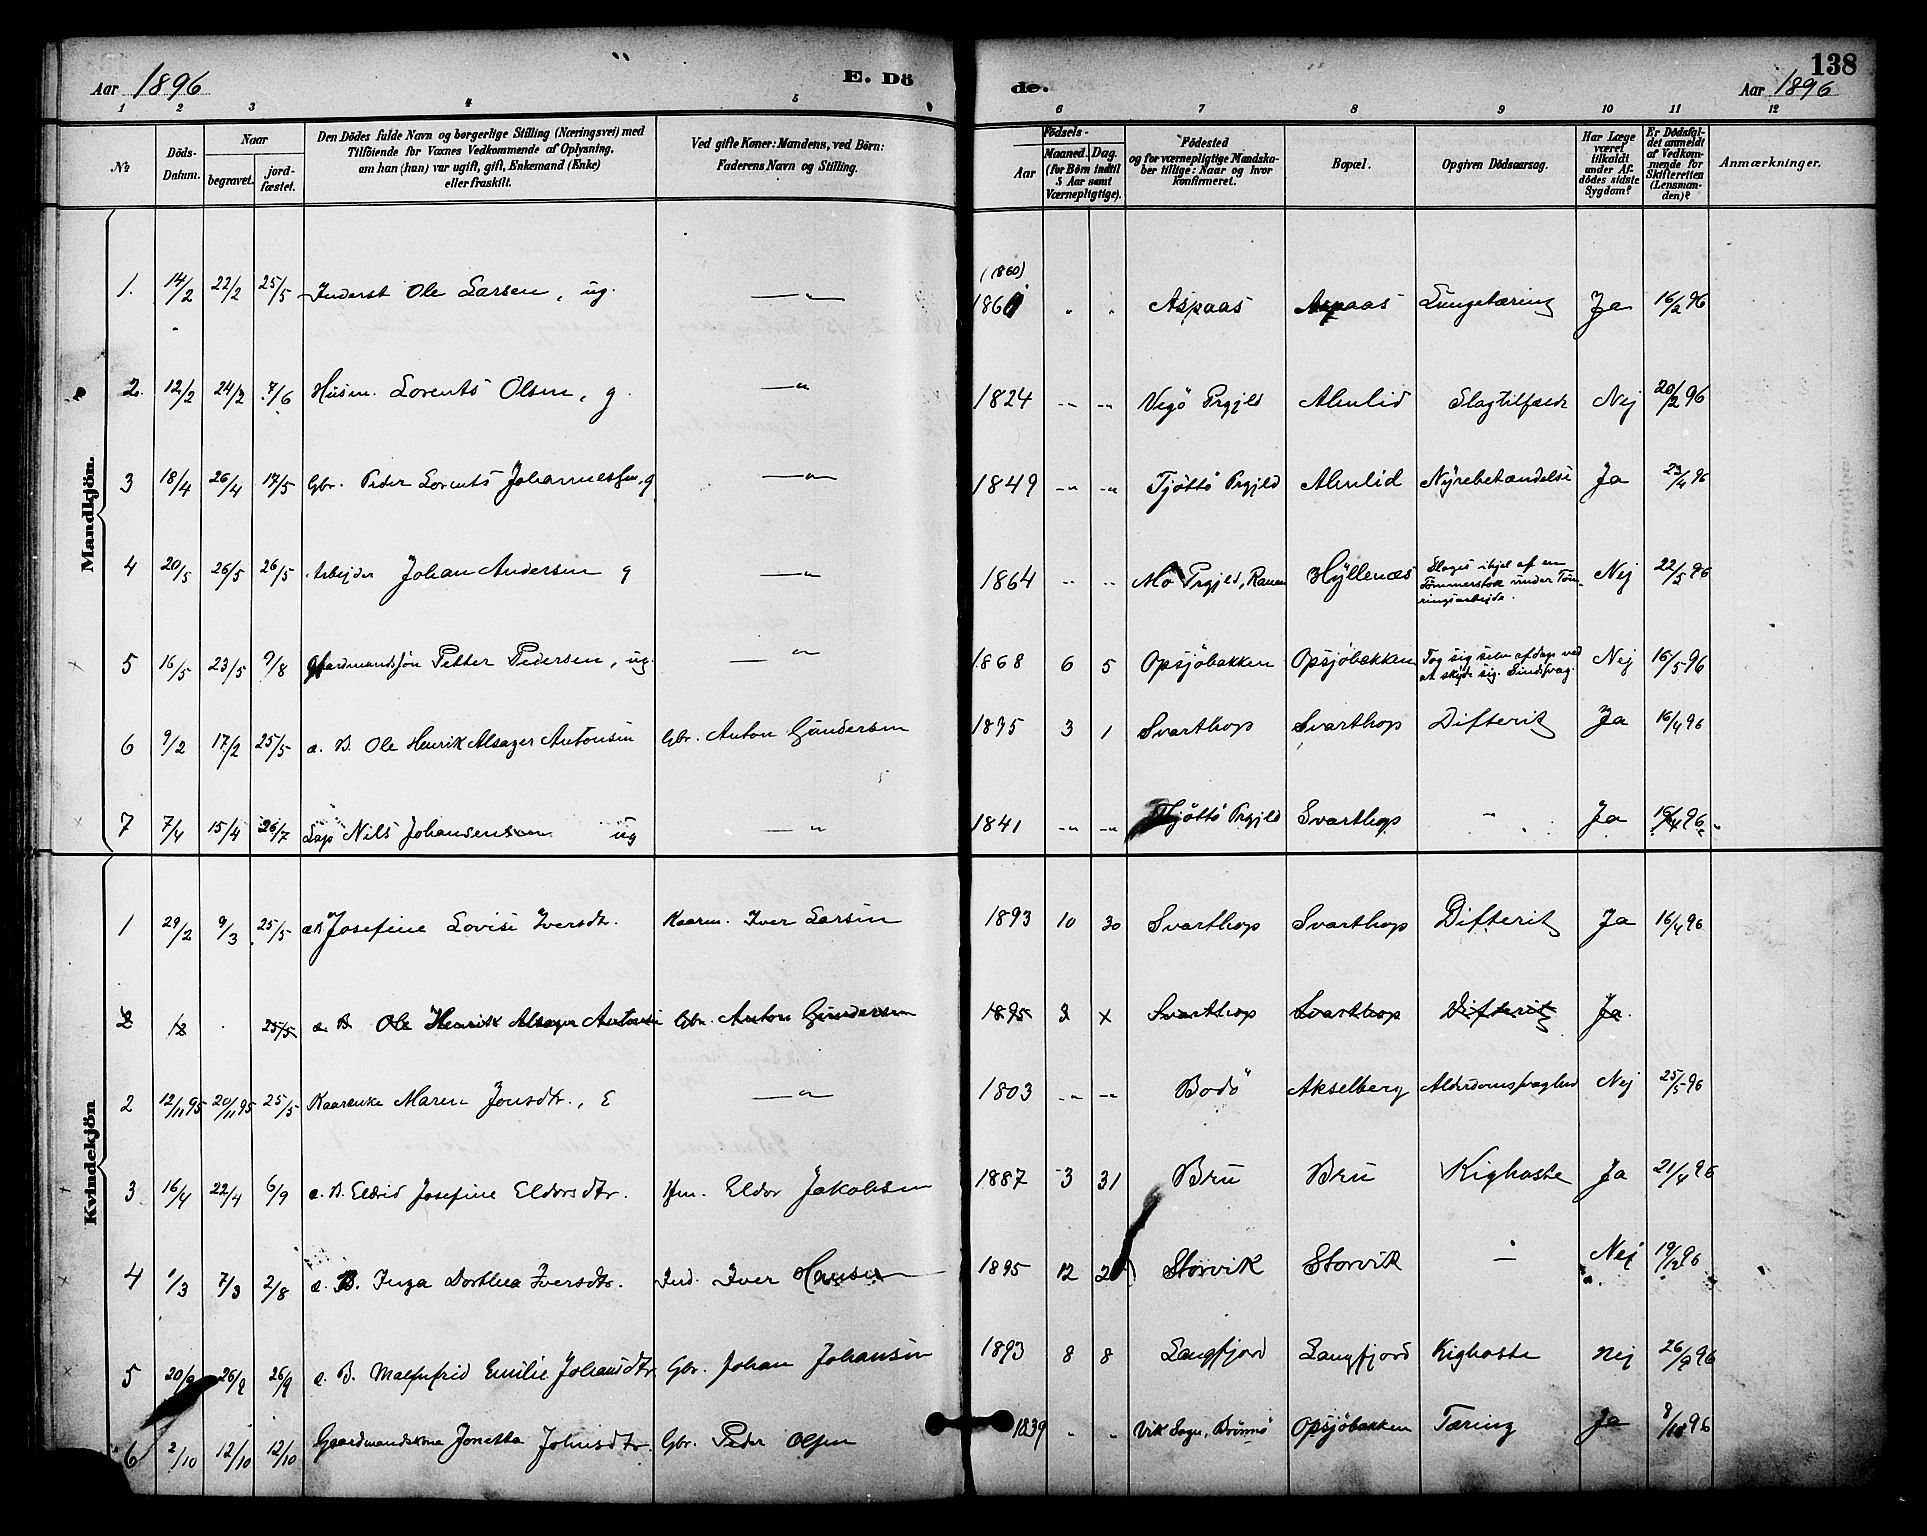 138
Aar 1896 E. Dö de. Aar 1896
1 2 3 4 5 6 6 7 8 9 10 11 12
No
Döds-Datum.
Naar
begravet. jord-fæstet.
Den Dödes fulde Navn og borgerlige Stilling (Næringsvei) med
Tilföiende for Voxnes Vedkommende af Oplysning,
om han (hun) var ugift, gift, Enkemand (Enke)
eller fraskilt.
Ved gifte Koner: Mandens, ved Börn:
Faderens Navn og Stilling.
Födsels-
Aar Maaned. Dag.
(for Börn indtil
5 Aar samt
Værnepligtige).
Födested
og for værnepligtige Mandska-
ber tillige: Naar og hvor
konfirmeret.
Bopæl.
Opgiven Dödsaarsag.
Har Læge
været
tilkaldt
under Af-
dödes sidste
Sygdom?
Er Dödsfal-
det anmeldt
af Vedkom-
mende for
Skifteretten
(Lensman-
den)?
Anmærkninger.
Mandkjön.
(1860)
1. 14/2 22/2 25/5 Inderst Ole Larsen, ug. —"— 186 " " Aspaas Aspaas Lungetæring Ja 16/2 96
2. 12/2 24/2 7/6 Husm. Lorents Olsen, g. —"— 1824 -"- -"- Vegö Prgjld Almlid Slagtilfælde Nej 20/2 96
3 18/4 26/4 17/5 Gbr. Peder Lorents Johannessen, g —"— 1849 -"- -"- Tjøttö Prgjld Almlid Nyrebetændelse Ja 23/4 96
4 20/5 26/5 26/5 Arbejder Johan Andersen g —"— 1864 -"- -"- Mo Prgjld, Ranen Hyllenæs Sloges ihjel af en
Tømmerstok under Töm-
ringsarbejde. Nej 22/5 96
5 16/5 23/5 9/8 Gaardmandssøn Petter Pedersen, ug. —"— 1868 6 5 Opsjöbakken Opsjöbakken Tog sig selv afdage ved
at skyde sig. Sindssvag. Nej 16/5 96
6 9/2 17/2 25/5 æ. B. Ole Henrik Alsager Antonsen Gbr. Anton Gundersen 1895 3 1 Svarthop Svarthop Difterit Ja 16/4 96
7 7/4 15/4 26/7 Lap Nils Johansensen ug —"— 1841 -"- -"- Tjöttö Prgjld Svarthop -"- Ja 16/4 96
Kvindekjön
1 29/2 9/3 25/5 æ B Josefine Lovise Iversdtr. Kaarm. Iver Larsen 1893 10 30 Svarthop Svarthop Difterit Ja 16/4 96
2 /2 25/5 æ. B. Ole Henrik Alsager Antonsen Gbr. Anton Gundersen 1895 3 x Svarthop Svarthop Difterit Ja
2 12/11 95 20/11 95 25/5 Kaarenke Maren Jonsdtr., E —"— 1803 -"- -"- Bodö Akselberg Alderdomssvaghed Nej 25/5 96
3 16/4 22/4 6/9 æ. B. Eldrid Josefine Eldorsdtr. Hm. Eldor Jakobsen 1887 3 31 Bru Bru Kighoste Ja 21/4 96
4 1/3 7/3 2/8 æ. B. Inga Dorthea Iversdtr. Ind. Iver Hansen 1895 12 Storvik Storvik -"- Nej 19/12 96
5 20/9 26/9 26/9 æ. B. Malfrid Emilie Johansdtr. Gbr. Johan Johansen 1893 8 8 Langfjord Langfjord Kighoste Nej 26/9 96
6 2/10 12/10 12/10 Gaardmandskone Jonetta Johnsdtr. Gbr. Peder Olsen 1839 " " Vik Sogn, Brönnö Opsjöbakken Tæring Ja 8/10 96